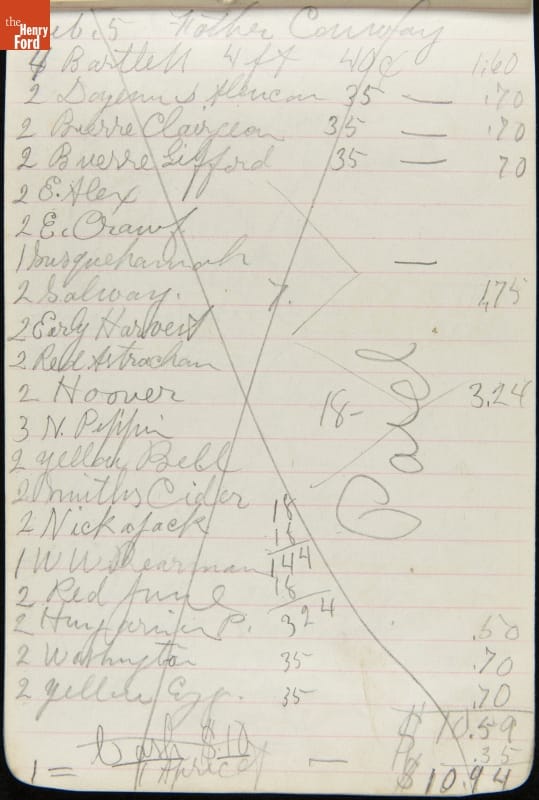 the Henry Ford
Feb. 5 Father Conway
4 Bartlett 4 ft 40c 1.60
2 Doyenn d Alencon 35 — .70
2 Bierre Clairgeau 35 — .70
2 Buerre Gifford 35 — 70
2 E. Alex
2 E. Crawf.
1 Susquehannah —
2 Salway. 7. 1,75
2 Early Harvest
2 Red Astrachan
2 Hoover 18- 3.24
3 N. Peppin Paid
2 Yellow Bell
2 Smiths Cider 18
2 Nickajack 18
1 W W Pearmain 144
2 Red June 18
2 Hungarian P. 324 .50
2 Washington 35 .70
2 Yellow Egg. 35 .70
$10.59
Cash $.10 .35
1 = 1 Apricot — $10.94